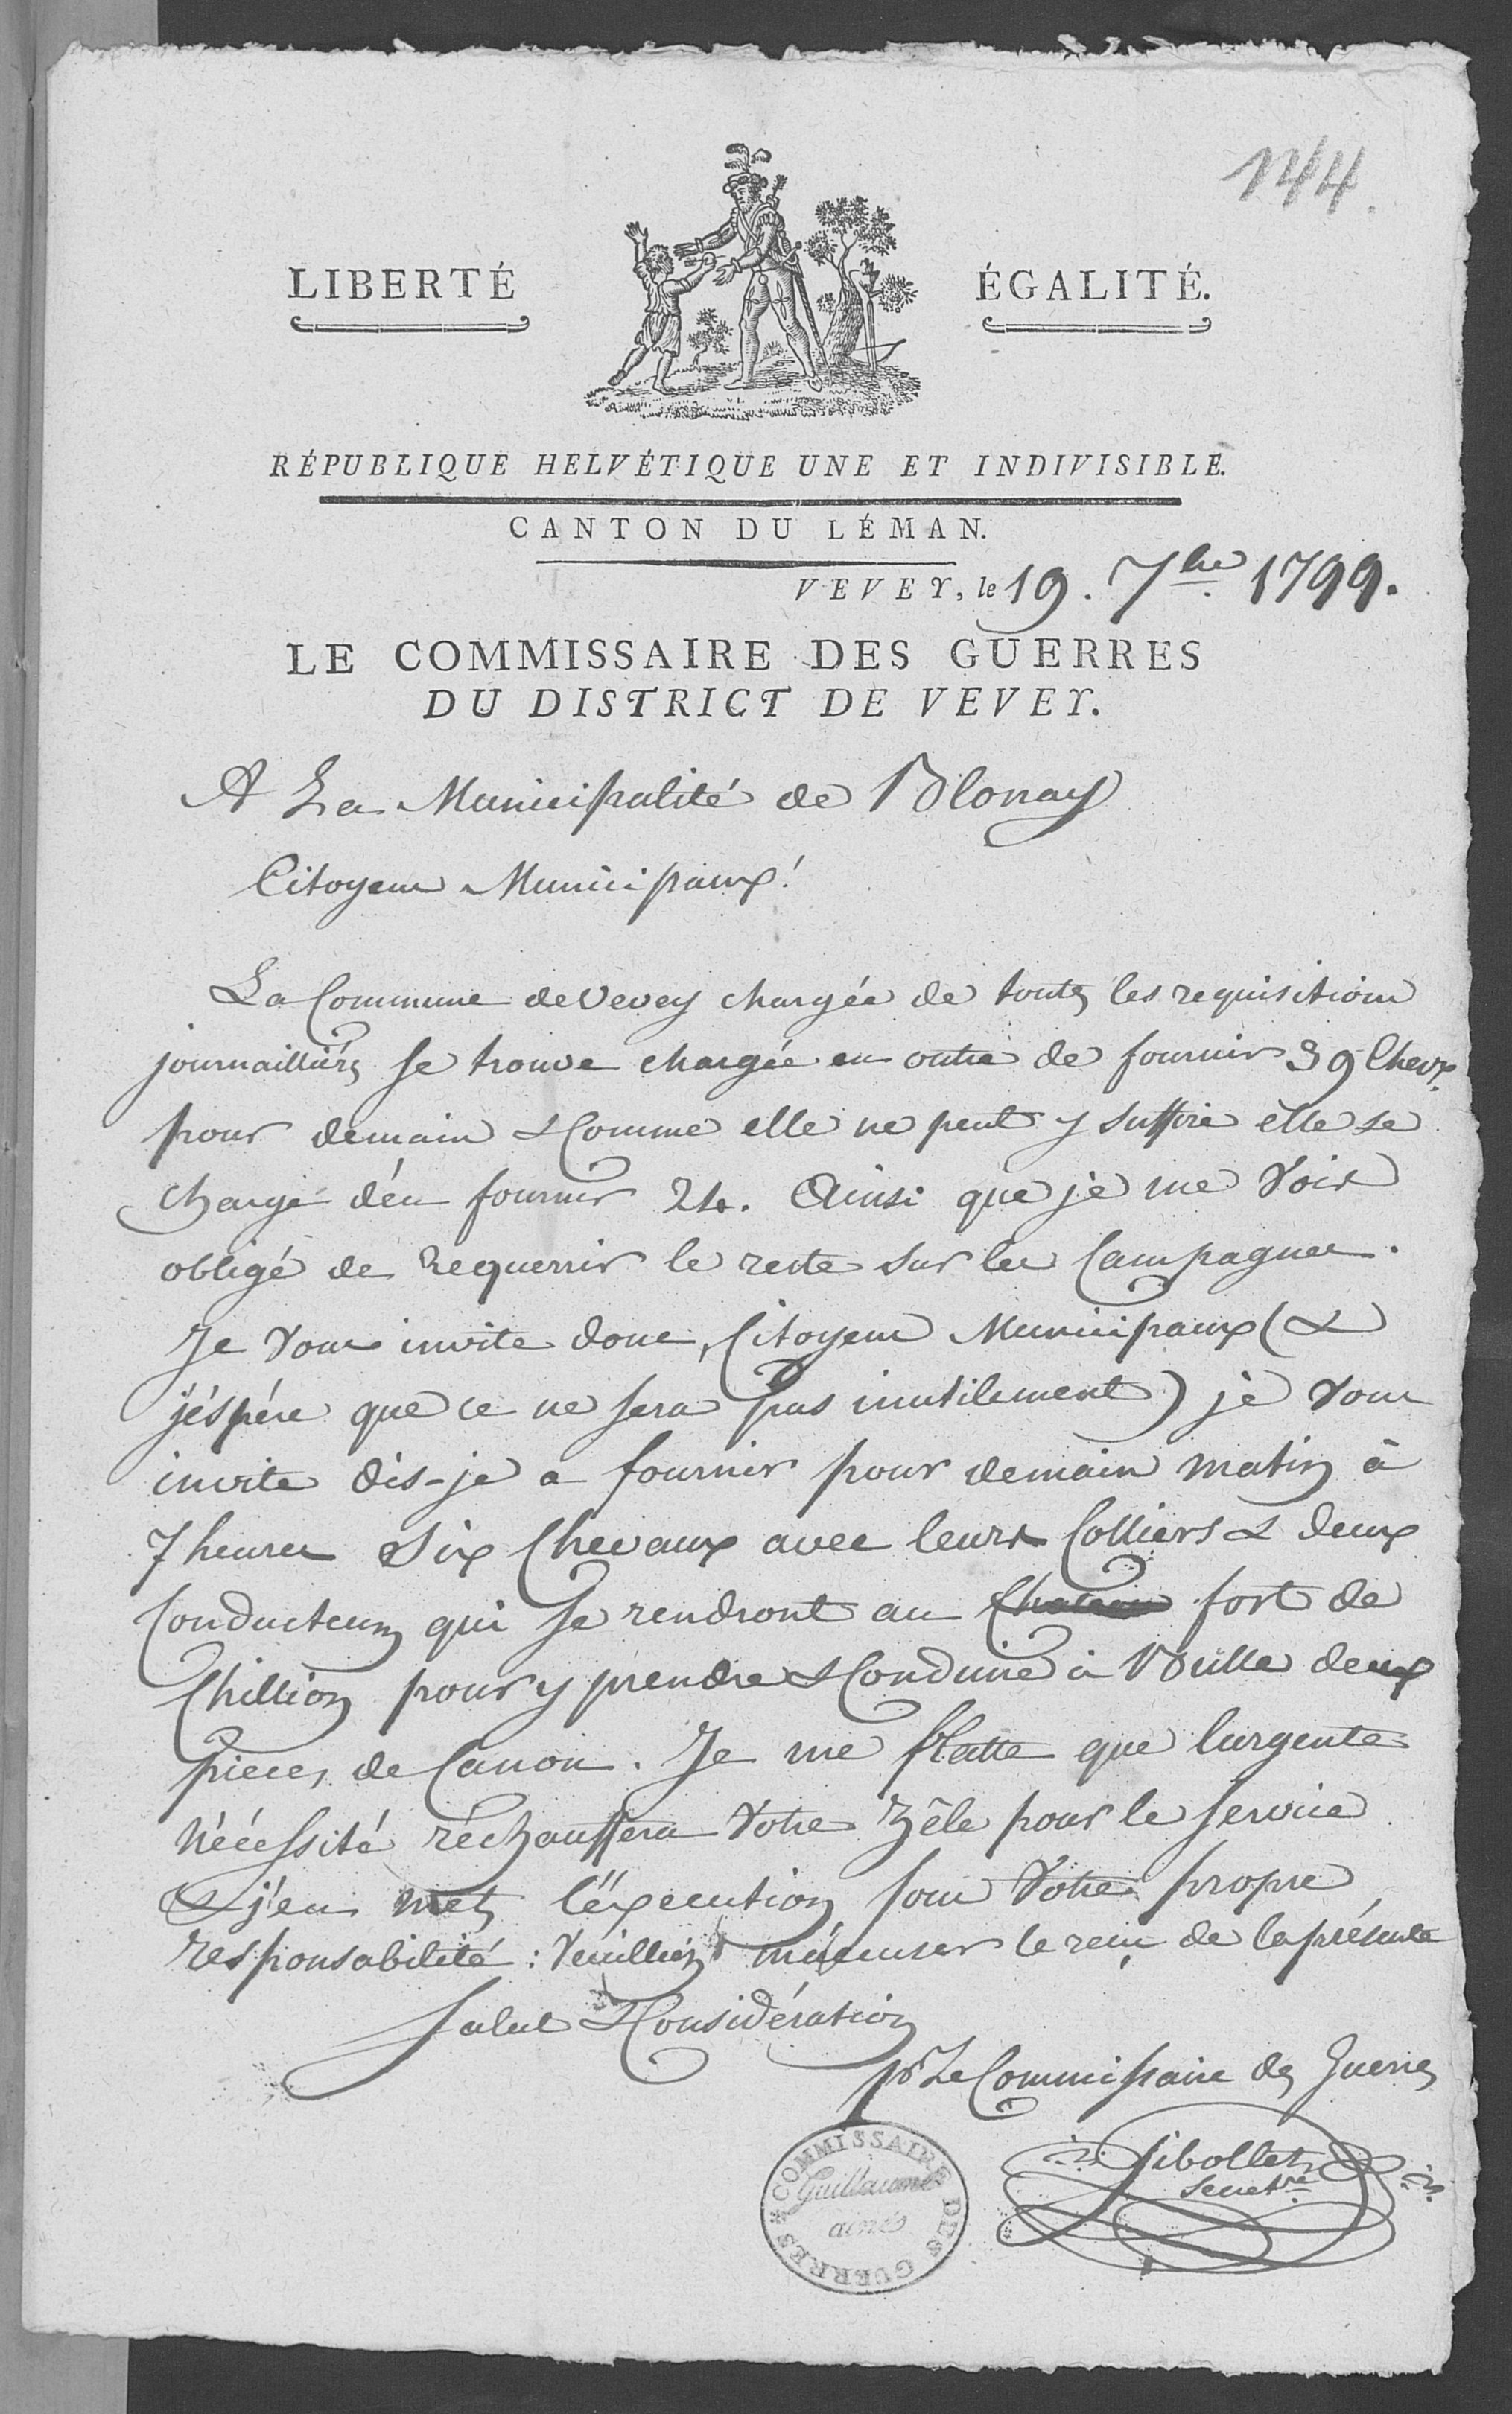 144.
LIBERTÉ ÉGALITÉ.
RÉPUBLIQUE HELVÉTIQUE UNE ET INDIVISIBLE.
CANTON DU LÉMAN.
VEVEY, le 19. 7bre 1799.
LE COMMISSAIRE DES GUERRES
DU DISTRICT DE VEVEY.
A La Municipalité de Blonay
Citoyens Municipaux!
La Commune de Vevey chargée de toutes les requisitions
journaillières se trouve chargée en outre de fournir 39 Chevx.
pour demain & Comme elle ne peut y suffire elle se
charge d'én fournir 24. Ainsi que je me Vois
obligé de Requerrir le reste sur les Campagnes.
Je Vous invite donc, Citoyens Municipaux (&
j'éspére que ce ne sera pas inutilement) je Vous
invite dis-je a fournir pour demain matin à
7 heures Six Chevaux avec leurs Colliers & deux
Conducteurs qui se rendront au Chateau fort de
Chillion pour y prendre & Conduire à Bulle deux
pieces de Canon. Je me flatte que lurgente
Nécéssité réchauffera Votre Zêle pour le Service
& j'en mets l'éxecution sous Votre propre
responsabilité : Veuilliez m'accuser le reçu de la présente
Salut & Considération
pr. Le Commissaire des Guerres
Sibollet
Secretre.
COMMISSAIRE DES GUERRES
Guillaume
ainé